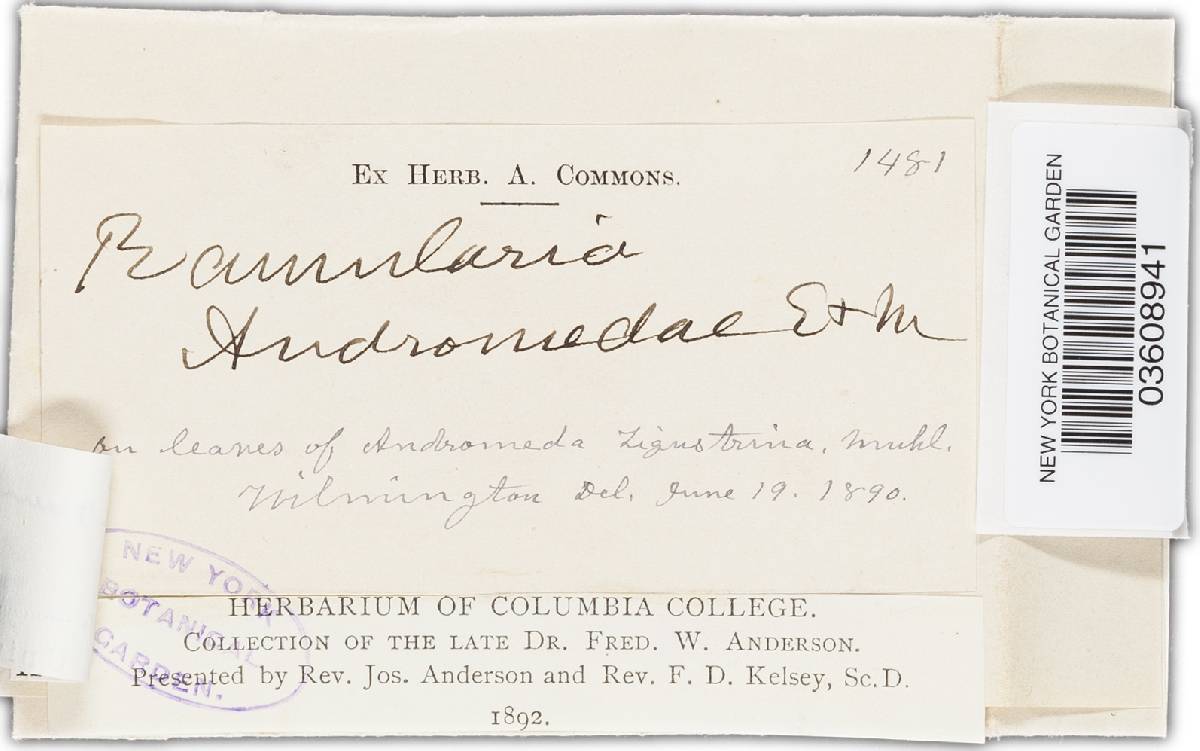 Ex Herb. A. Commons.
1481
Ramularia
Andromedae E & M
on leaves of Andromeda Ligustrina, Muhl.
Wilmington Del. June 19. 1890.
NEW YORK
BOTANICAL
GARDEN.
HERBARIUM OF COLUMBIA COLLEGE.
Collection of the late Dr. Fred. W. Anderson.
Presented by Rev. Jos. Anderson and Rev. F. D. Kelsey, Sc.D.
1892.
NEW YORK BOTANICAL GARDEN
03608941